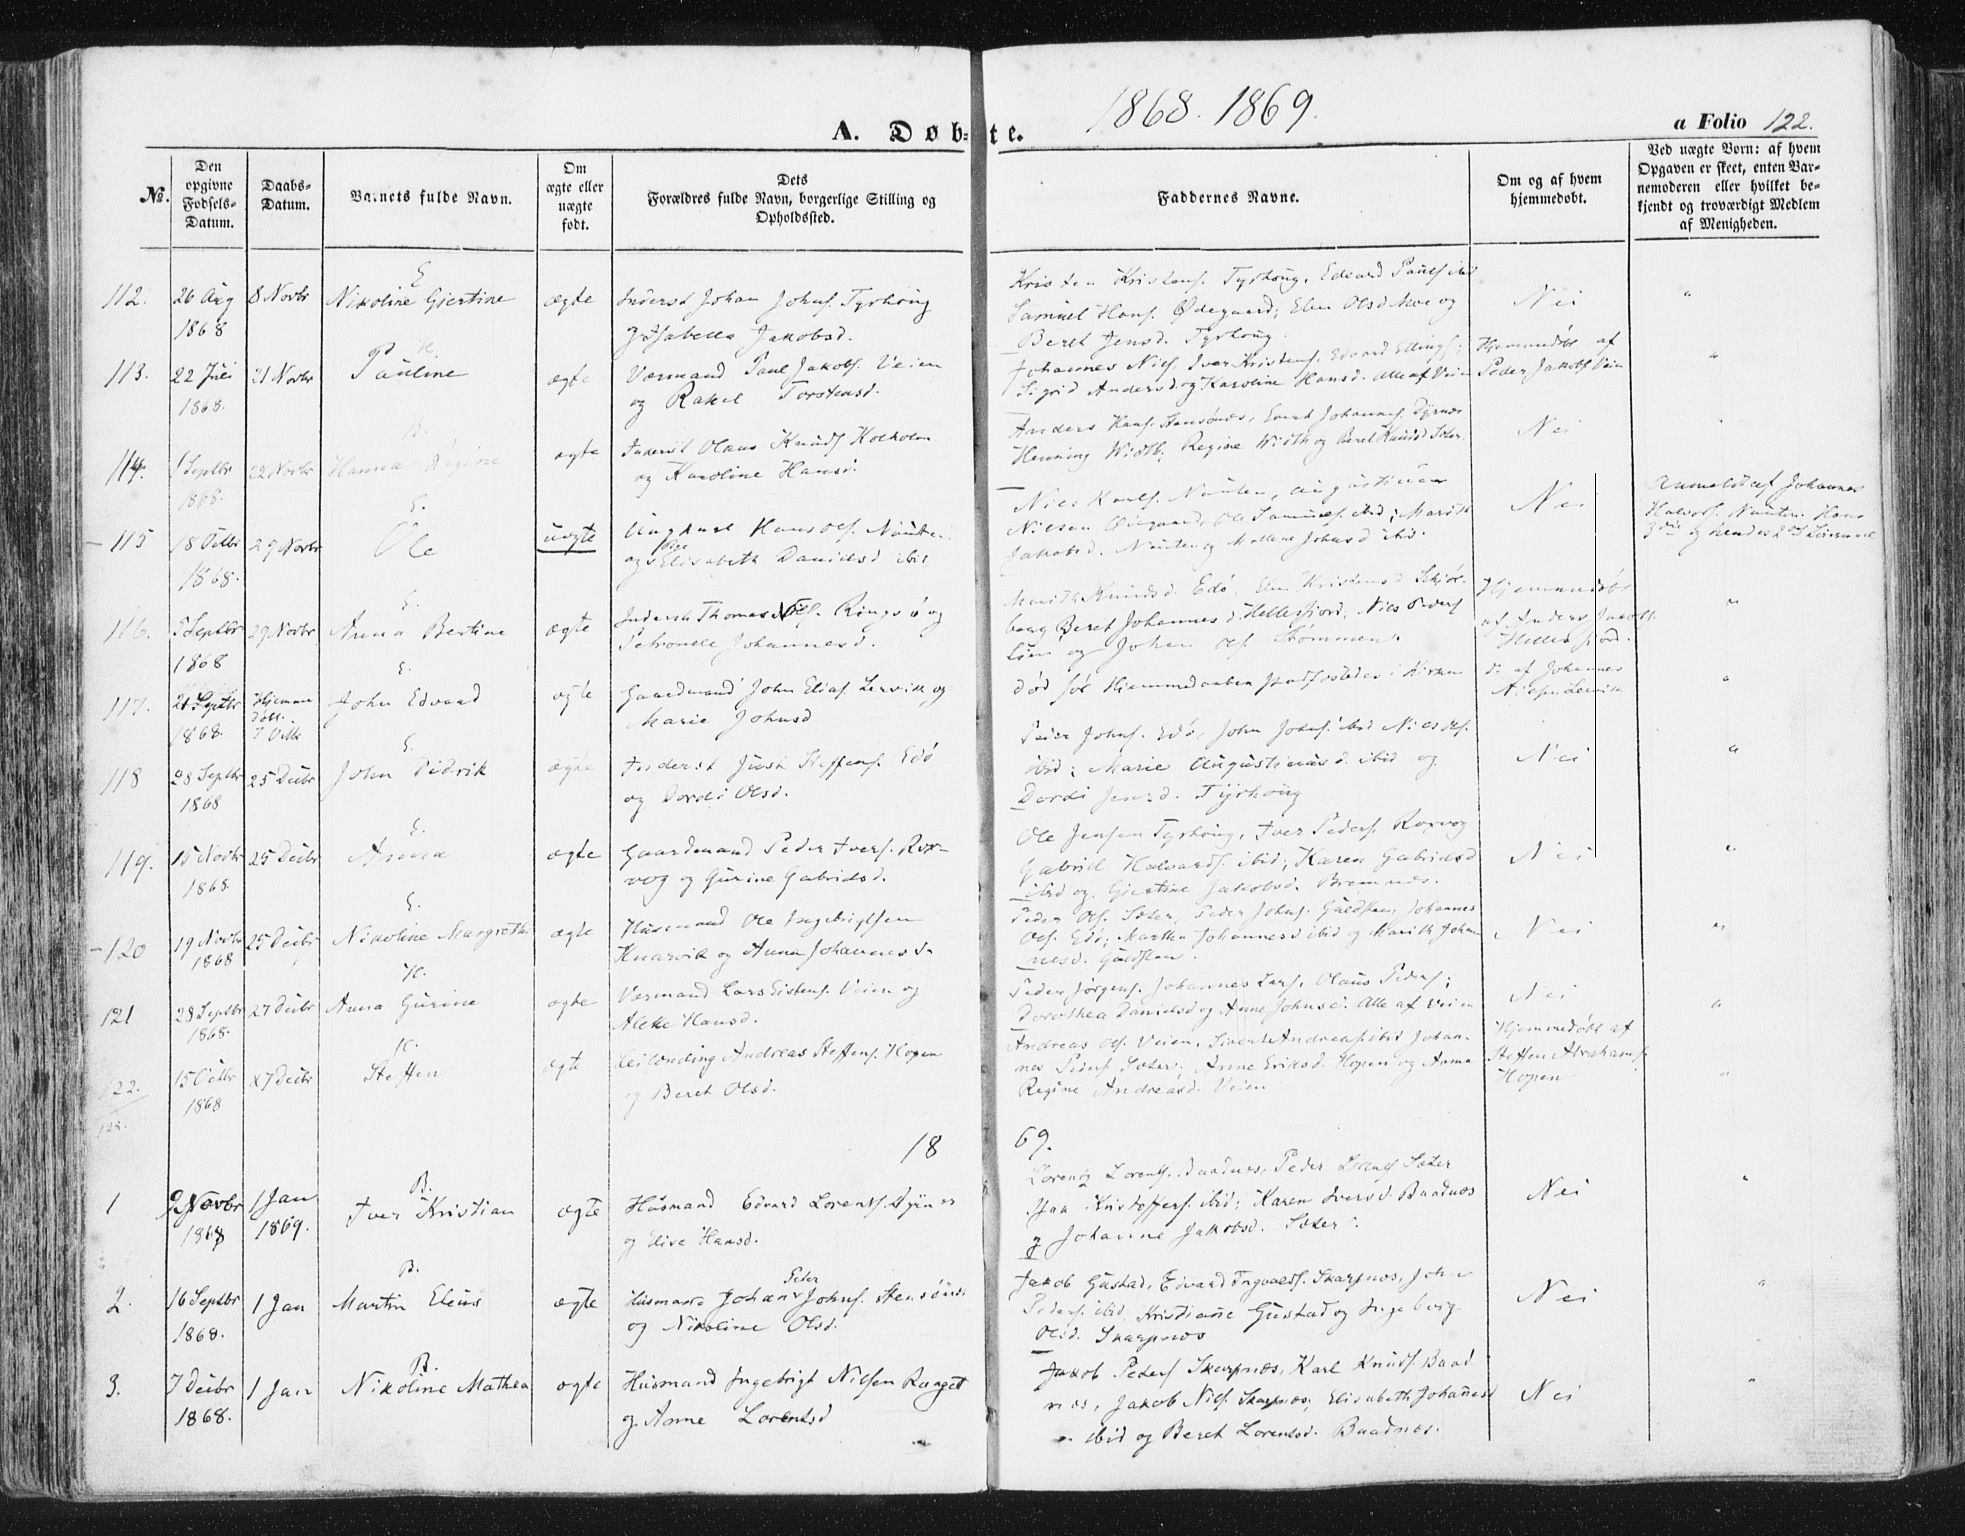 A. Døbte.
1868. 1869.
a Folio 122.
№.
Den opgivne Fødsels-Datum.
Daabs-Datum.
Barnets fulde Navn.
Om ægte eller uægte født.
Dets Forældres fulde Navn, borgerlige Stilling og Opholdssted.
Faddernes Navne.
Om og af hvem hjemmedøbt.
Ved uægte Børn: af hvem Opgaven er skeet, enten Barnemoderen eller hvilket bekjendt og troværdigt Medlem af Menigheden.
E
112. 26 Aug 1868 8 Novbr Nikoline Gjertine ægte Inderst Johan Johns. Tyrhoug
Isabella Jakobsd.
Kristen Kristens. Tyrhoug, Edvard Pauls. ibid
Samuel Hans. Ødegaard; Elen Olsd Moe og
Beret Jensd. Tyrhoug.
Nei "
H.
113. 22 Juli 1868. 21 Novbr Pauline ægte Værmand Paul Jakobs. Veien
og Rakel Torstensd.
Johannes Niels. Iver Kristens. Edvard Ellings;
Sigrid Andersd og Karoline Hansd. Alle af Veien
Hjemmedøbt af
Peder Jakobs Veien "
B.
114. 1 Septbr 1868. 22 Novbr Hanna Regine ægte Inderst Olaus Knuds Kolholm
og Karoline Hansd.
Anders Hans. Stensønes, Johannes. Dyrnes
Henning Width; Regine Width og Beret Knudsd Sæter.
Nei
E.
115 18 Octbr 1868. 29 Novbr Ole uægte Ungkarl Hans Ols. Nauten
og Pige Elisabeth Danielsd ibid
Niels Karls. Nauten, Augustinus
Nielsen Ødegaard, Ole Samuels. ibid; Marith
Jakobsd. Nauten og Mallene Johnsd ibid.
Nei
Anmeldt af Johannes
Halvors. Nauten. Hans
3die og hendes 2det Leiermaal
E.
116. 5 Septbr 1868 29 Novbr Anna Bertine ægte Inderst Thomas Ols. Ringsø og
Petronelle Johannesd.
Marith Knudsd. Edø, Elen Kristensd Skjøl-
berg Beret Johannesd. Hellesfjord; Niels Peders
og Johan Ols Strømmen.
Hjemmedøbt
af Anders Jacobs.
Hellesfjord. "
E.
117. 21 Septbr 1868. Hjemmedøbt 7 Octb John Edvard ægte Gaardmand John Elias. Lervik og
Marie Johnsd
død før Hjemmedaaben stadfæstedes i Kirken
do af Johannes
Lervik "
E.
118 28 Septbr 1868 25 Decbr John Didrik ægte Inderst Just Steffens. Edø
og Dordi Olsd.
Peder Johns. Edø, John Johns. ibid Niels Ols.
ibid; Marie Augustinusd. ibid og
Dordi Jensd. Tyrhoug
Nei "
E.
119. 15 Novbr 1868. 25 Decbr Anna ægte Gaardmand Peder Ivers. Rox-
vog og Gurine Gabrielsd.
Ole Jensen Tyrhoug, Iver Peders. Roxvog
Gabriel Halvards. ibid; Karen Gabrielsd
ibid og Gjertine Jakobsd. Bremnes.
Nei "
E.
120 19 Novbr 1868 25 Decbr Nikoline Margrethe ægte Husmand Ole Ingebrigtsen
Knarvik og Anna Johannesd.
Peder Ols. Sæter, Peder Johns. Guldsten, Johannes
Ols. Edø; Martha Johannesd ibid og Marith Johan
nesd. Guldsten.
Nei "
H.
121 28 Septbr 1868. 27 Decbr Anna Gurine ægte Værmand Lars Eistens. Veien og
Aleke Hansd.
Peder Jørgens. Johannes Lars, Olaus Peders;
Dorothea Danielsd og Anne Johnsd. Alle af Veien
Nei "
H.
122. 15 Octbr 1868 27 Decbr Steffen ægte Leilending Andreas Steffens. Hopen
og Beret Olsd.
Andreas Ols. Veien, Sivert Andreas. ibid Johan-
nes Peders Sæter; Anne Eriksd. Hopen og Anne
Regine Andreasd. Veien
Hjemmedøbt af
Steffen Abrahams.
Hopen "
1869.
B.
1 2 Novbr 1868 1 Jan 1869. Iver Kristian ægte Husmand Edvard Lorents. Dyrnes
og Elise Hansd.
Lorents Lorents. Baadnes, Peder Sæter
Kristoffers. ibid; Karen Iversd. Baadnes
og Johanne Jakobsd. Sæter.
Nei "
B.
2. 16 Septbr 1868. 1 Jan Martin Eleus ægte Husmand Johan Peter Johns. Stensønes
og Nikoline Olsd.
Jakob Gustad, Edvard Ingvalds. Skarpnes, John
Peders. ibid, Kristiane Gustad og Ingeborg
Olsd. Skarpnes
Nei "
B.
3. 7 Decbr 1868. 1 Jan Nikoline Mathea ægte Husmand Ingebrigt Nilsen Ranget
og Anne Lorentsd
Jakob Peders Skarpnes, Karl Knuds. Baad
nes, Jakob Niels Skarpnes; Elisabeth Johannesd
ibid og Beret Lorentsd. Baadnes.
Nei "